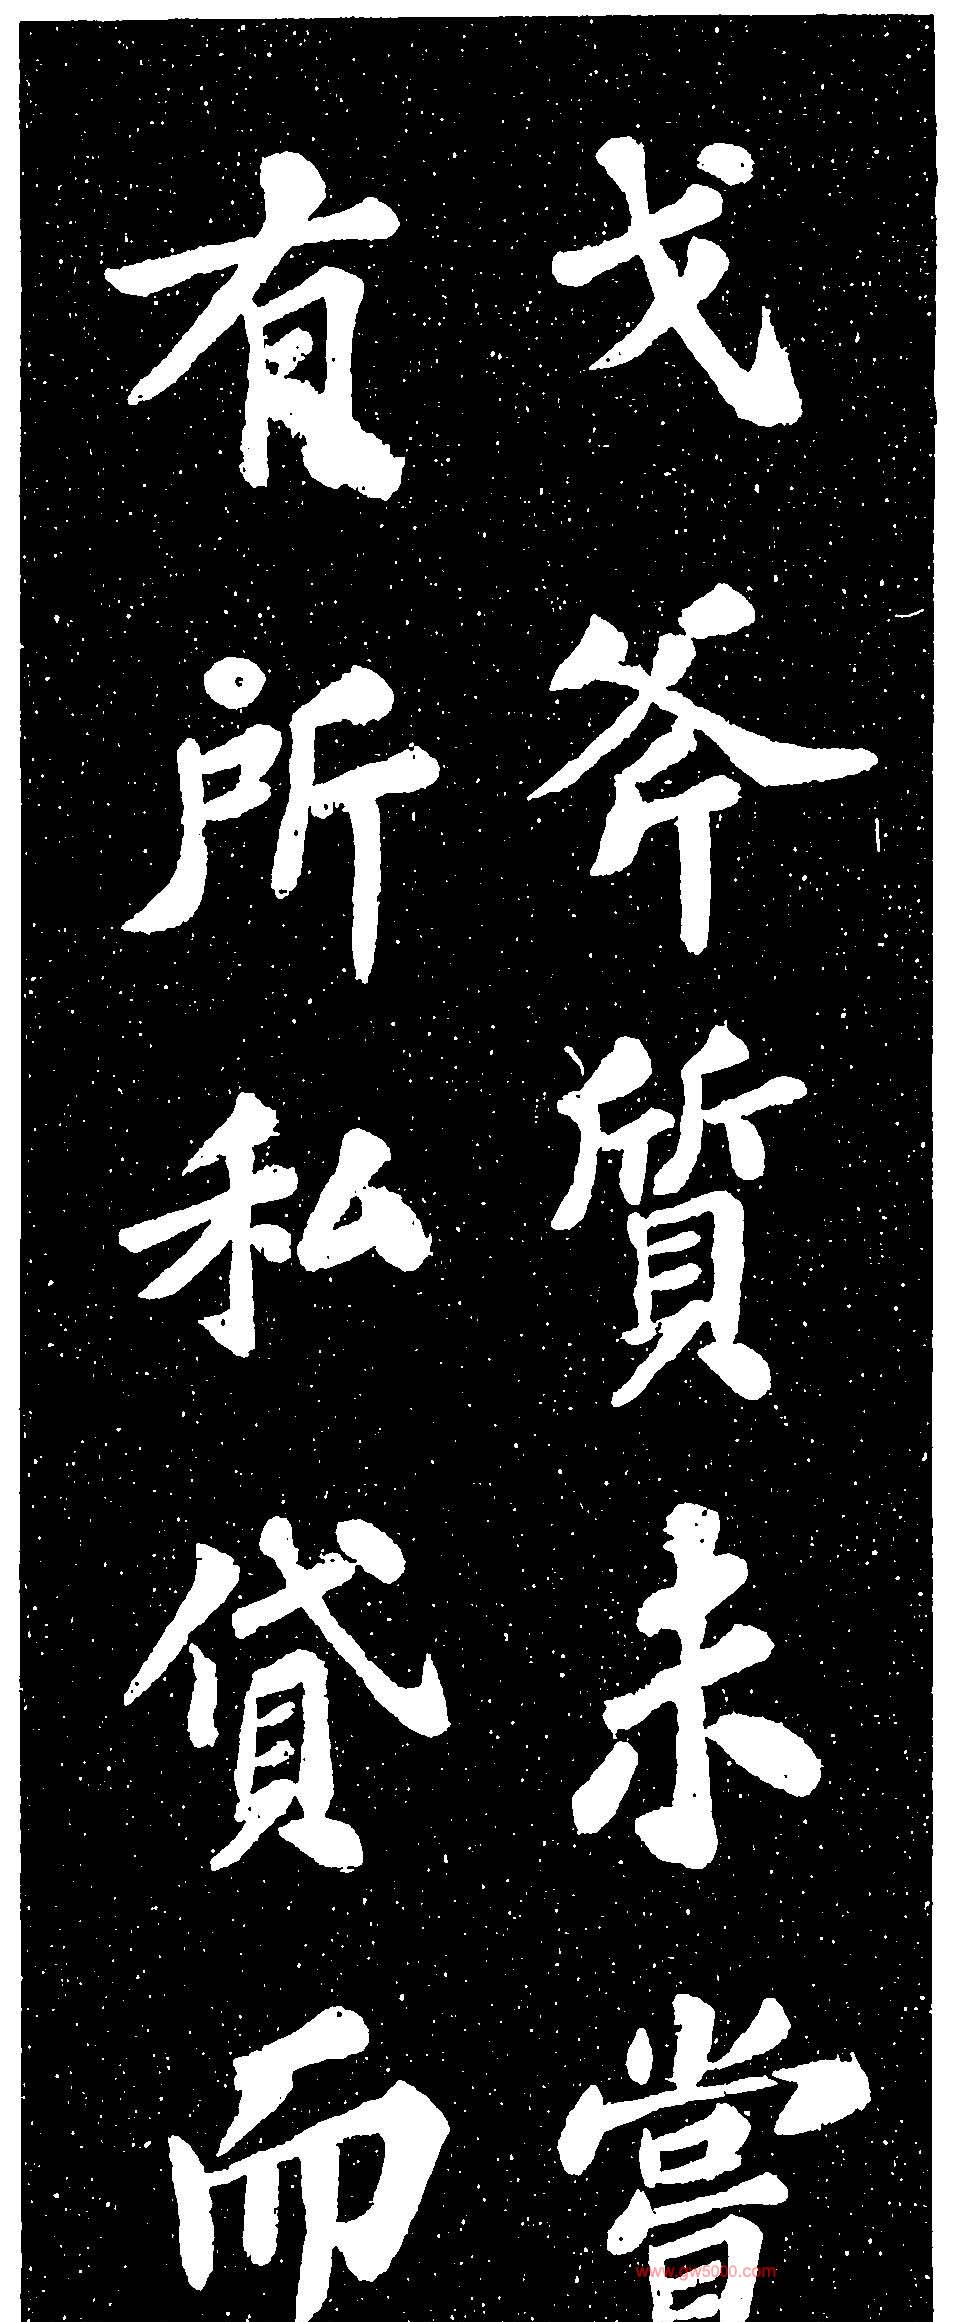 戈斧質未嘗
有所私貸而
www.gw5000.com